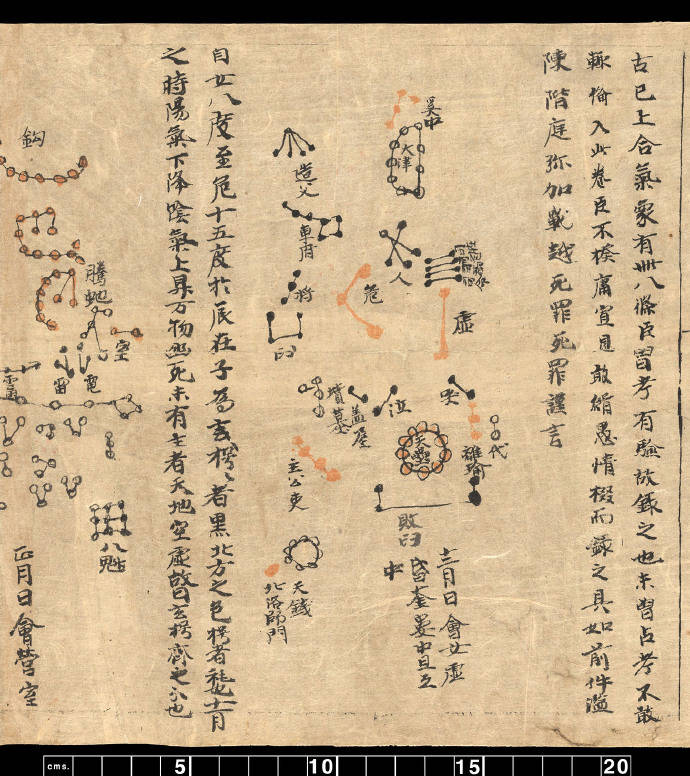 古已上合氣象有卌八條臣曾考有驗故錄之也未曾占考不敢
輙備入此卷臣不揆庸冝見敢緝愚情掇而錄之具如前件滥
陳階庭弥加戰越死罪死罪謹言
天津
人
危
虛
哭
泣
代
離瑜
天壘
敗臼
十二月日會女虛
昏奎婁中旦互
中
造父
車府
臼
墳墓
蓋屋
主公吏
天錢
北落師門
自女八度至危十五度於辰在子為玄枵〻者黑北方之色枵者耗也十一月
之時陽氣下降陰氣上昇万物幽死未有生者天地空虛故曰玄枵齊之分也
鈎
騰虵
室
電
雷
八魁
正月日會營室